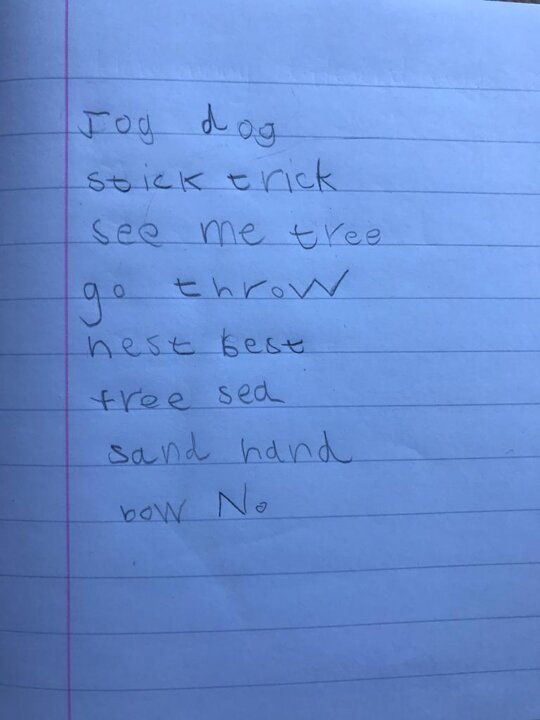 Jog dog
stick trick
see me tree
go throw
nest best
free sea
sand hand
bow No